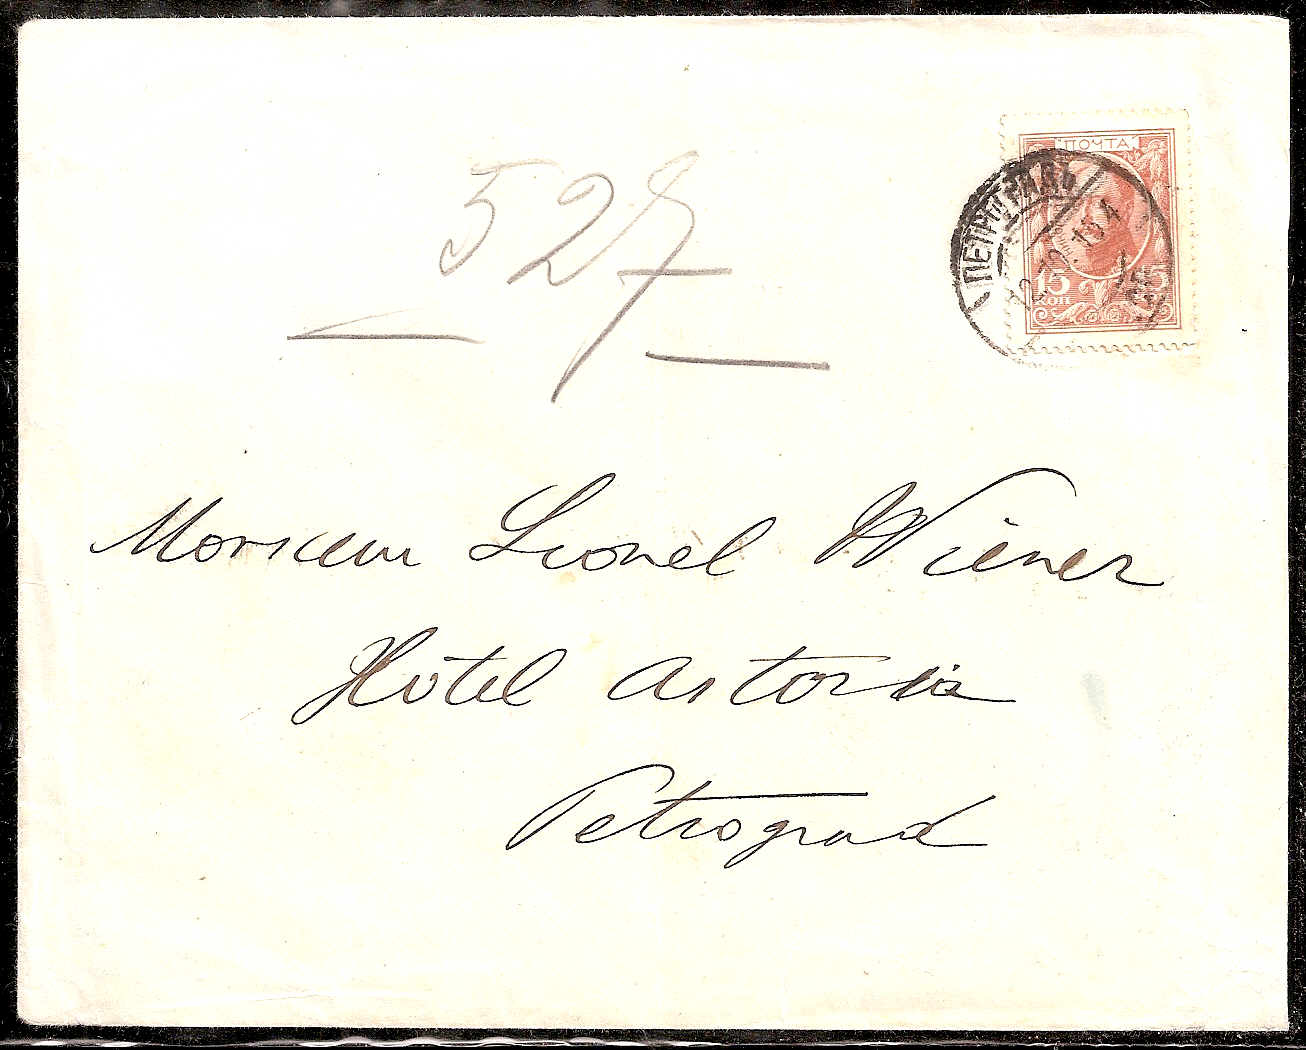 ПОЧТА
15 КОП 15
ПЕТРОГРАДЪ
527
Monsieur Lionel Wiener
Hôtel Astoria
Petrograd